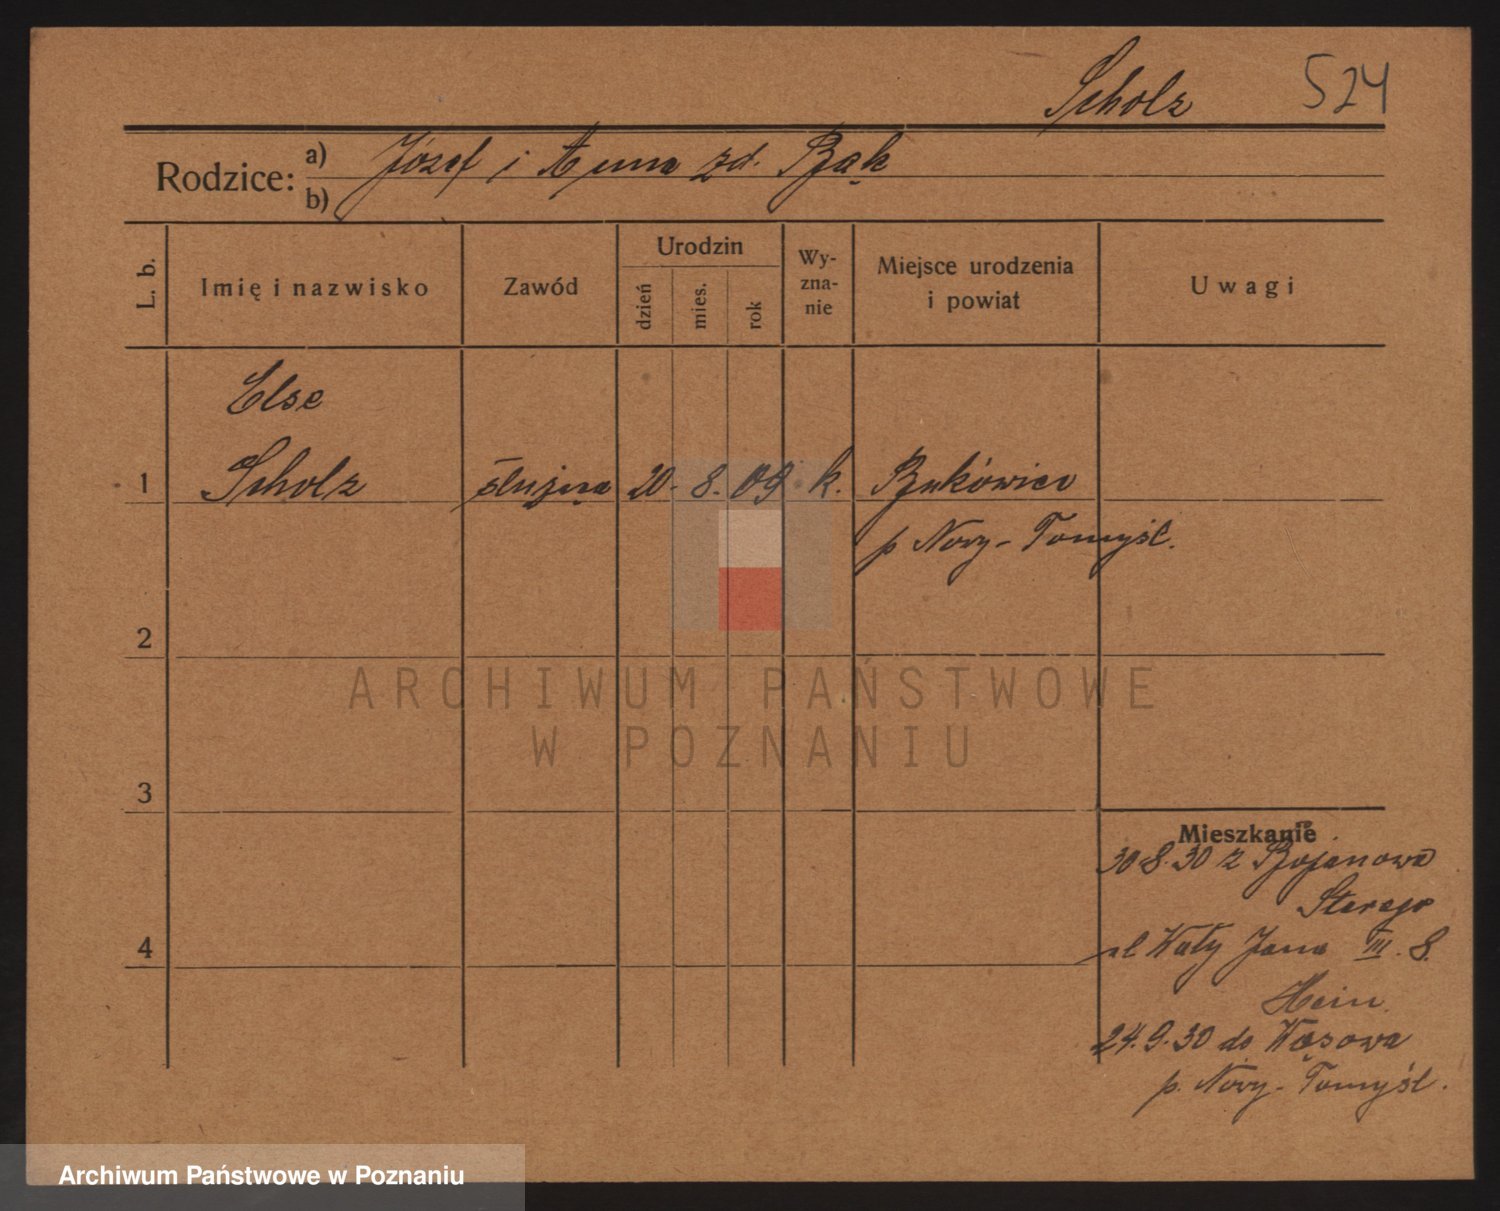 Scholz 524
Rodzice: a) Józef i Anna zd. Bąk
b)
L. b.
Imię i nazwisko
Zawód
Urodzin
dzień
mies.
rok
Wy-
zna-
nie
Miejsce urodzenia
i powiat
Uwagi
Else
1 Scholz służąca 20. 8. 09 k. Bukówiec
p Nowy-Tomyśl.
2
ARCHIWUM PAŃSTWOWE
W POZNANIU
3
Mieszkanie
30.8.30 z Bojanowa
Starego
ul Wały Jana III. 8.
4
Hein
24.9.30 do Wąsowa
p. Nowy-Tomyśl.
Archiwum Państwowe w Poznaniu